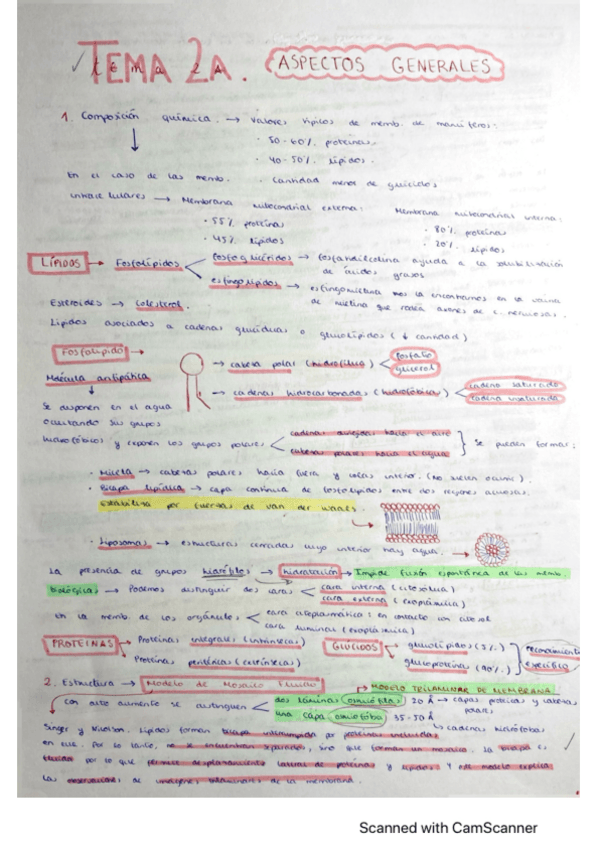 TEMA 2A. ASPECTOS GENERALES
1. Composición química. → Valores típicos de memb. de mamíferos:
· 50-60% proteínas.
· 40-50% lípidos.
En el caso de las memb. · Cantidad menor de glúcidos
intracelulares → Membrana mitocondrial externa: Membrana mitocondrial interna:
· 55% proteína · 80% proteína
· 45% lípidos · 20% lípidos
LÍPIDOS → Fosfolípidos fosfoglicérido → fosfatidilcolina ayuda a la solubilización
de ácidos grasos
esfingolípidos → esfingomielina nos la encontramos en la vaina
Esteroides → colesterol. de mielina que rodea axones de c. nerviosas.
Lípidos asociados a cadenas glucídicas o glucolípidos (↓ cantidad)
FOSFOLÍPIDO → cabeza polar (hidrófila) fosfato
glicerol
Molécula antipática → cadenas hidrocarbonadas (hidrofóbica) cadena saturada
cadena insaturada
Se disponen en el agua
ocultando sus grupos
hidrofóbicos y exponen los grupos polares cadenas alejadas hacia el aire
cabezas polares hacia el agua
Se pueden formar:
· Micela → cabezas polares hacia fuera y colas interior. (No suelen ocurrir).
· Bicapa lipídica → capa continua de fosfolípidos entre dos regiones acuosas.
Estabiliza por fuerzas de van der waals.
· Liposomas → estructuras cerradas cuyo interior hay agua.
La presencia de grupos hidrófilos → hidratación → Impide fusión espontánea de las memb.
biológicas → Podemos distinguir dos caras cara interna (citosólica)
cara externa (exoplásmica)
En la memb. de los orgánulos cara citoplasmática: en contacto con citosol
cara luminal (exoplásmica)
PROTEÍNAS Proteína integrales (intrínsecas) GLÚCIDOS glucolípidos (5%) reconocimiento
Proteína periférica (extrínseca) glucoproteína (90%) específico
2. Estructura → Modelo de Mosaico Fluido MODELO TRILAMINAR DE MEMBRANA
con alto aumento se distinguen dos láminas osmiófila 20 Å → capas proteicas y cabezas
polares
una capa osmiófoba 35-50 Å
Singer y Nicolson. Lípidos forman bicapa interrumpida por proteínas incluidas cadenas hidrófobas
en ella. Por lo tanto, no se encuentran separados, sino que forman un mosaico. La bicapa es
fluida por lo que permite desplazamiento lateral de proteínas y lípidos y este modelo explica
las observaciones de imágenes trilaminares de la membrana.
Scanned with CamScanner